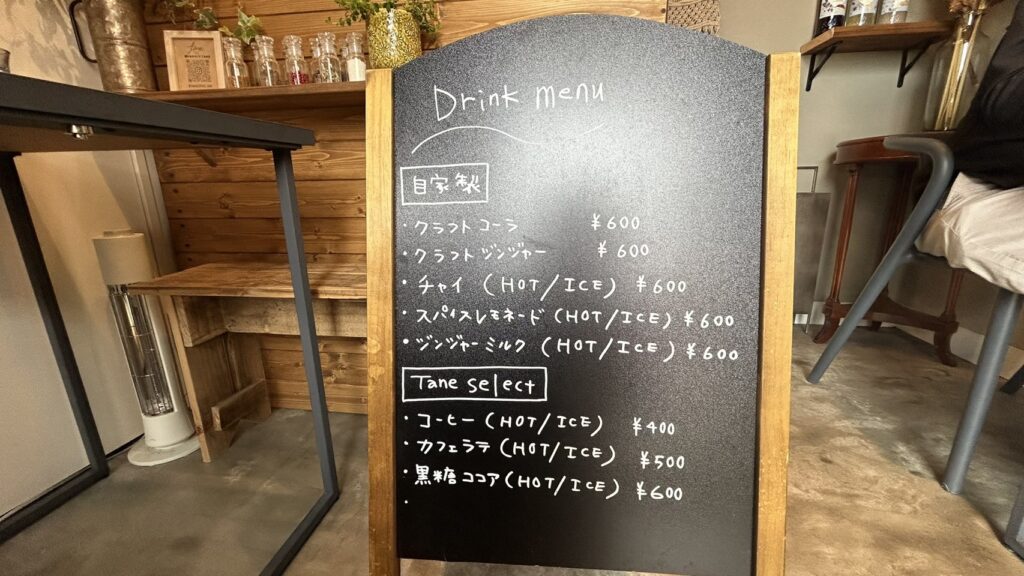 Drink menu
自家製
・クラフトコーラ ¥600
・クラフトジンジャー ¥600
・チャイ (HOT/ICE) ¥600
・スパイスレモネード (HOT/ICE) ¥600
・ジンジャーミルク (HOT/ICE) ¥600
Tane select
・コーヒー (HOT/ICE) ¥400
・カフェラテ (HOT/ICE) ¥500
・黒糖ココア (HOT/ICE) ¥600
・